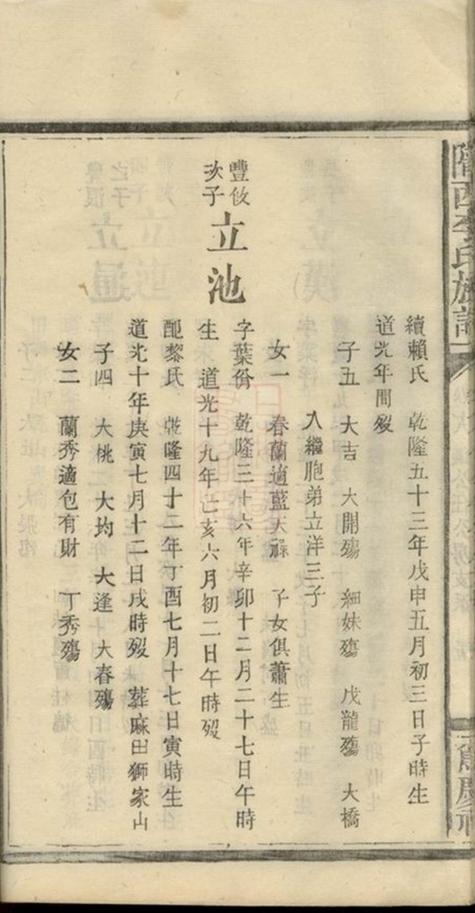 隴西李氏族譜
續賴氏 乾隆五十三年戊申五月初三日子時生
道光年間歿
子五 大吉 大開殤 細妹殤 戊龍殤 大橋
入繼胞弟立洋三子
女一 春蘭適藍天祿 子女俱蕭生
豐攸
次子
立池
字葉佾 乾隆三十六年辛卯十二月二十七日午時
生 道光十九年亡亥六月初二日午時歿
配黎氏 乾隆四十二年丁酉七月十七日寅時生
道光十年庚寅七月十二日戌時歿 葬麻田獅家山
子四 大桃 大均 大逢 大春殤
女二 蘭秀適包有財 丁秀殤